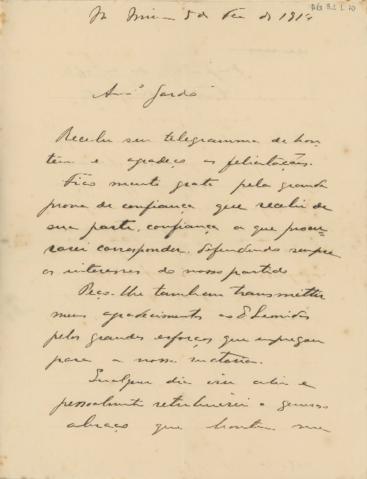 5 de de 1914
Am.º
Recebi seu telegramma de hon
tem e agradeço as felicitações.
Fico muito grato pela grande
prova de confiança que recebi de
sua parte, confiança a que procu-
rarei corresponder, defendendo sempre
os interesses do nosso partido
Peço-lhe tambem transmittir
meus agradecimentos ao Leonidas
pelos grandes esforços que empregou
para a nossa victoria.
Qualquer dia irei ahi e
pessoalmente retribuirei o
abraço que hontem me